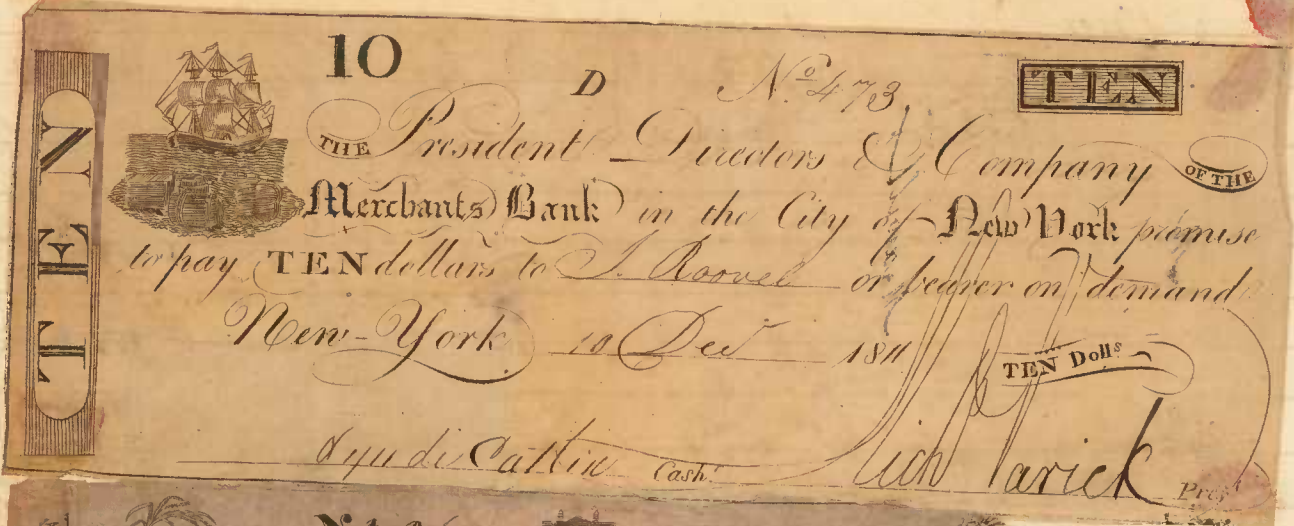 TEN
10 D No. 473 TEN
THE President Directors & Company OF THE
Merchants Bank in the City of New York promise
to pay TEN dollars to J. or bearer on demand
New-York 10 Decr 1811 TEN Dolls
Lynde Catlin Cashr. Rich Varick Prest